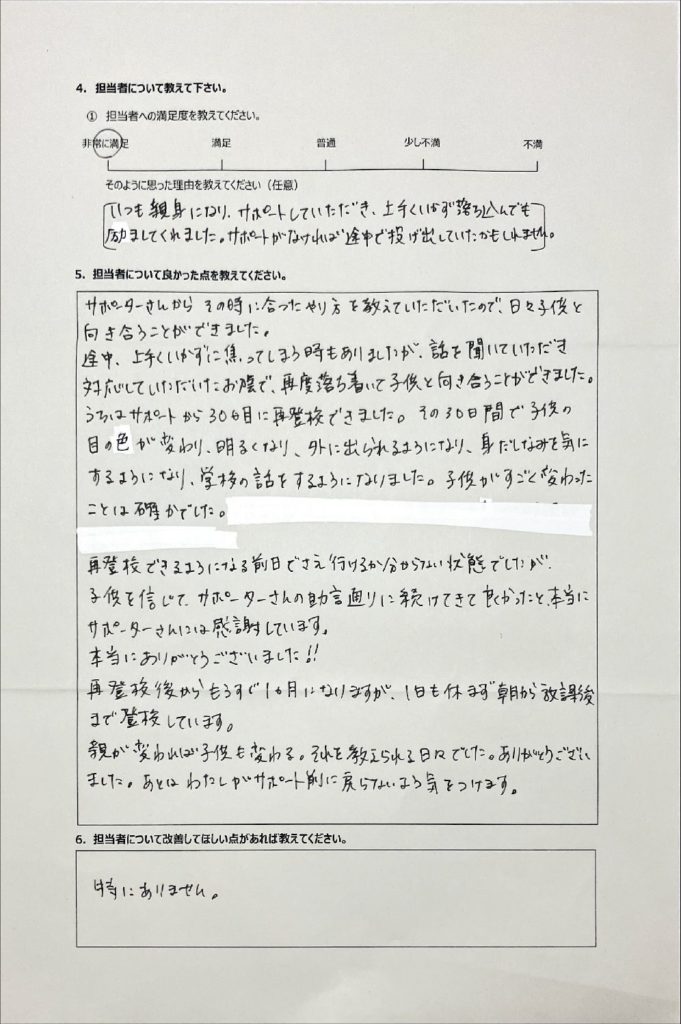 4. 担当者について教えて下さい。
① 担当者への満足度を教えてください。
非常に満足 満足 普通 少し不満 不満
そのように思った理由を教えてください（任意）
いつも親身になり、サポートしていただき、上手くいかず落ち込んでも
励ましてくれました。サポートがなければ途中で投げ出していたかもしれません。
5. 担当者について良かった点を教えてください。
サポーターさんから その時に合ったやり方を教えていただいたので、日々子供と
向き合うことができました。
途中、上手くいかずに焦ってしまう時もありましたが、話を聞いていただき
対応していただいたお陰で、再度落ち着いて子供と向き合うことができました。
うちはサポートから30日目に再登校できました。その30日間で子供の
目の色が変わり、明るくなり、外に出られるようになり、身だしなみを気に
するようになり、学校の話をするようになりました。子供がすごく変わった
ことは確かでした。
再登校できるようになる前日でさえ行けるか分からない状態でしたが、
子供を信じて、サポーターさんの助言通りに続けてきて良かったと、本当に
サポーターさんには感謝しています。
本当にありがとうございました!!
再登校後からもうすぐ1ヵ月になりますが、1日も休まず朝から放課後
まで登校しています。
親が変われば子供も変わる。それを教えられる日々でした。ありがとうござい
ました。あとは わたしがサポート前に戻らないよう気をつけます。
6. 担当者について改善してほしい点があれば教えてください。
特にありません。